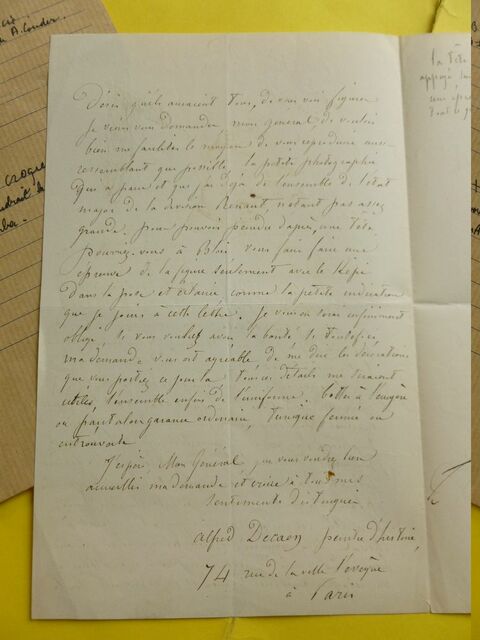 A. Couder
croquis
Désir qu'ils auraient tous, de vous voir figurer
Je viens vous demander, mon général, de vouloir
bien me faciliter le moyen de vous reproduire aussi
ressemblant que possible. la petite photographie
qui a paru et que j'ai déjà de l'ensemble de l'état
major de la division Renaut, n'étant pas assez
grande pour pouvoir peindre d'après, une tête
pourrez-vous à Blois vous faire faire une
épreuve de la figure seulement avec le Képi
Dans la pose et éclairée comme la petite indication
que je joins à cette lettre. Je vous en serai infiniment
obligé, si vous voulez avoir la bonté, si toutefois
ma demande vous est agréable de me dire les décorations
que vous portiez ce jour là, tous ces détails me seraient
utiles, l'ensemble enfin de l'uniforme. Bottes à l'écuyère
ou pantalon garance ordinaire, tunique fermée ou
entrouverte
J'espère, Mon Général, que vous voudrez bien
accueillir ma demande et croire à tous mes
sentiments distingués
Alfred Decaen peintre d'histoire
74 rue de la ville l'évêque
à Paris